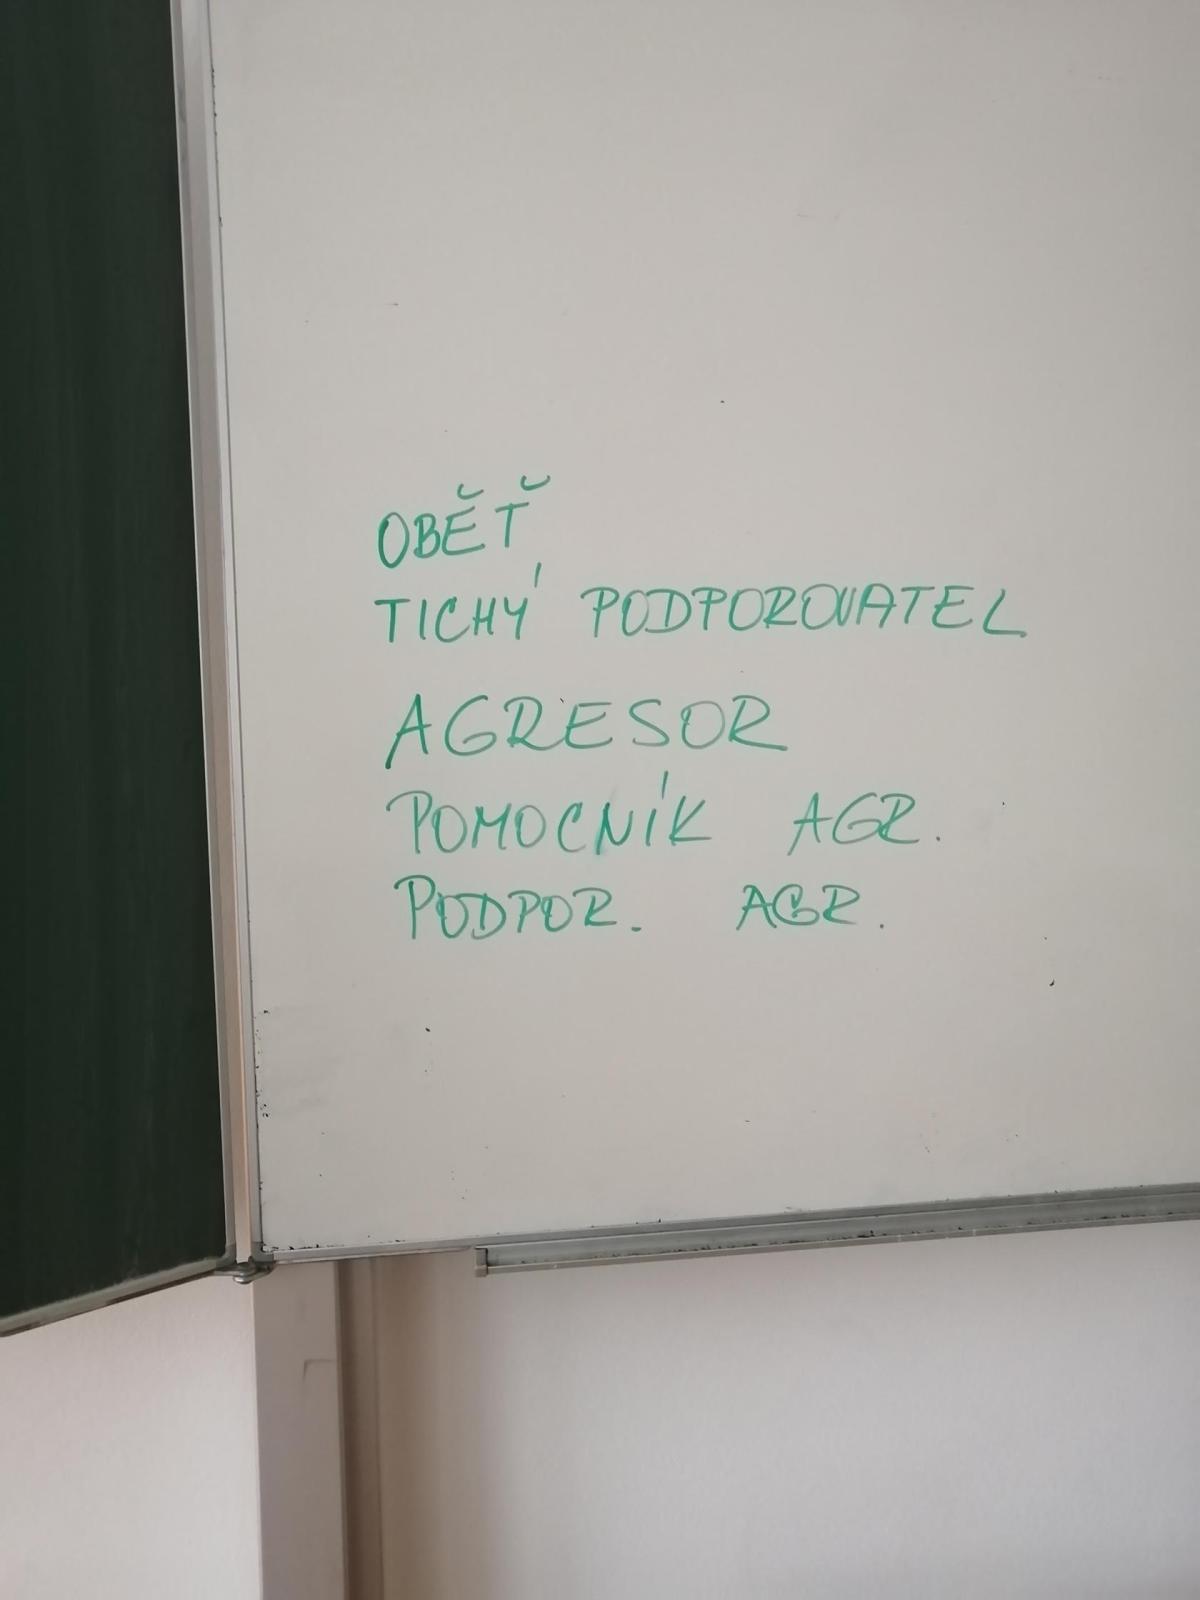 OBĚŤ
TICHÝ PODPOROVATEL
AGRESOR
POMOCNÍK AGR.
PODPOR. AGR.